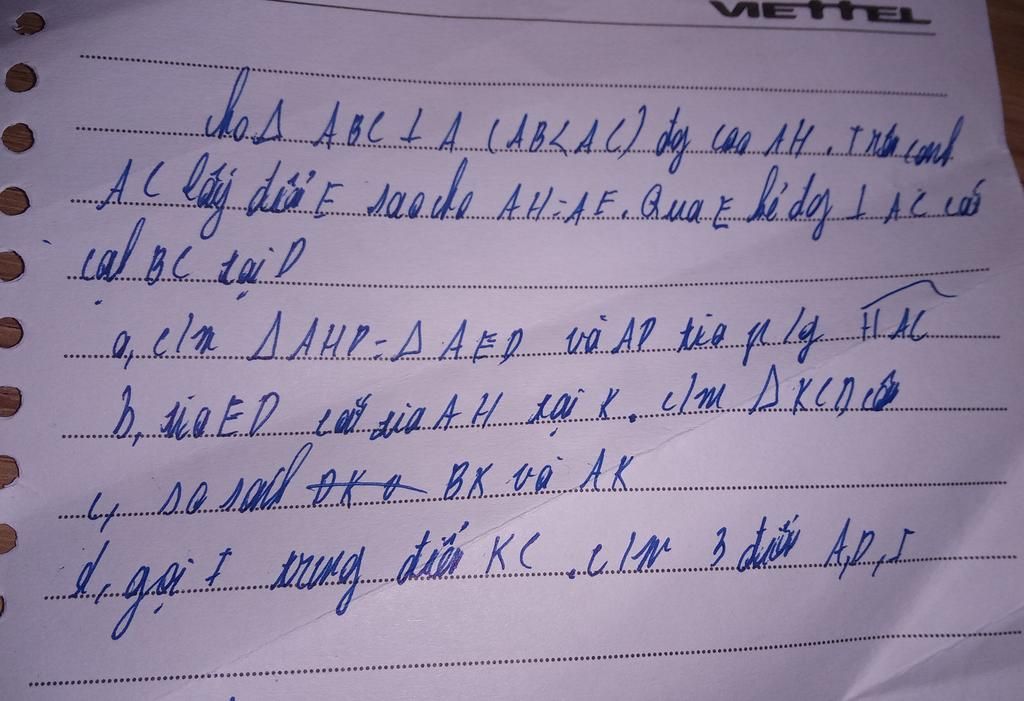 VIETTEL
cho Δ ABC ⊥ A (AB<AC) đg cao AH. Trên cạnh
AC lấy điểm E sao cho AH=AE. Qua E kẻ đg ⊥ AC cắt
cạnh BC tại D
a, c/m Δ AHD = Δ AED và AD tia p/g HAC
b, tia ED cắt tia AH tại K. c/m Δ KCD cân
c, so sánh BK và AK
d, gọi I trung điểm KC. c/m 3 điểm A,D,I